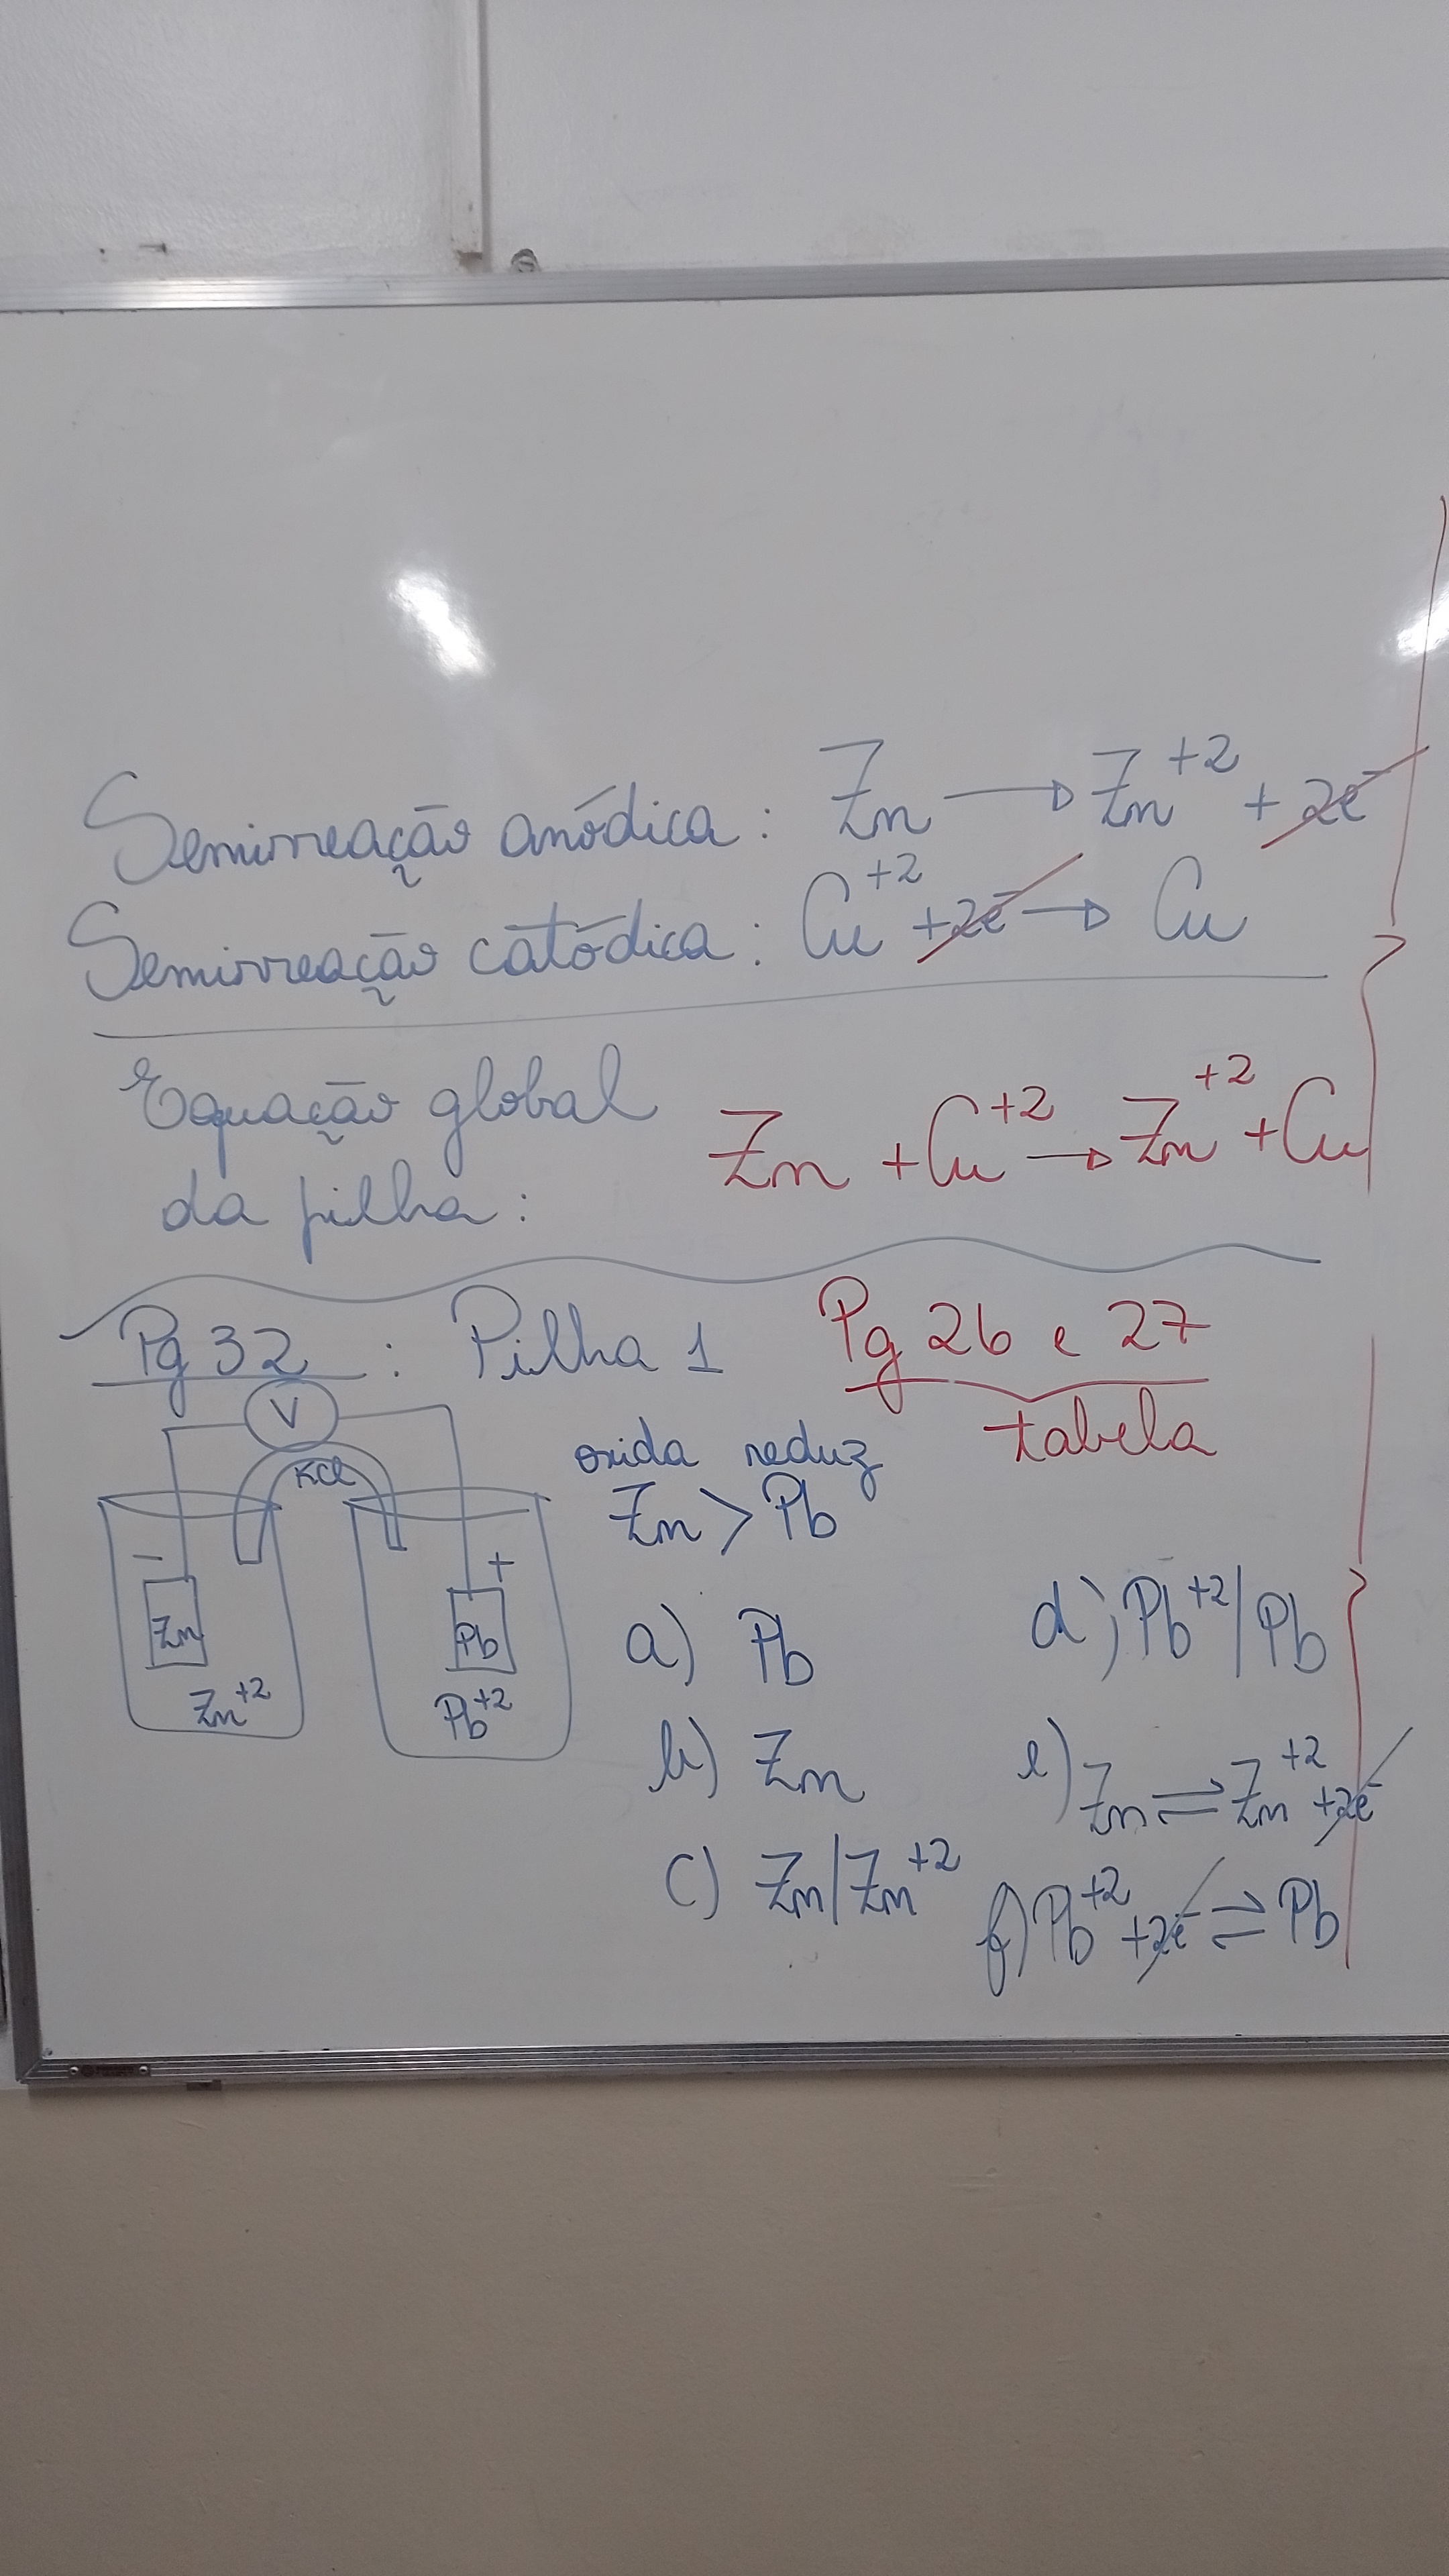 Semirreação anódica: Zn → Zn⁺² + 2e⁻
Semirreação catódica: Cu⁺² + 2e⁻ → Cu
Equação global
da pilha:
Zn + Cu⁺² → Zn⁺² + Cu
Pg 32 : Pilha 1
Pg 26 e 27
tabela
V
KCl
−
Zn
Zn⁺²
+
Pb
Pb⁺²
oxida reduz
Zn > Pb
a) Pb
b) Zn
c) Zn|Zn⁺²
d) Pb⁺²|Pb
e) Zn ⇌ Zn⁺² + 2e⁻
f) Pb⁺² + 2e⁻ ⇌ Pb